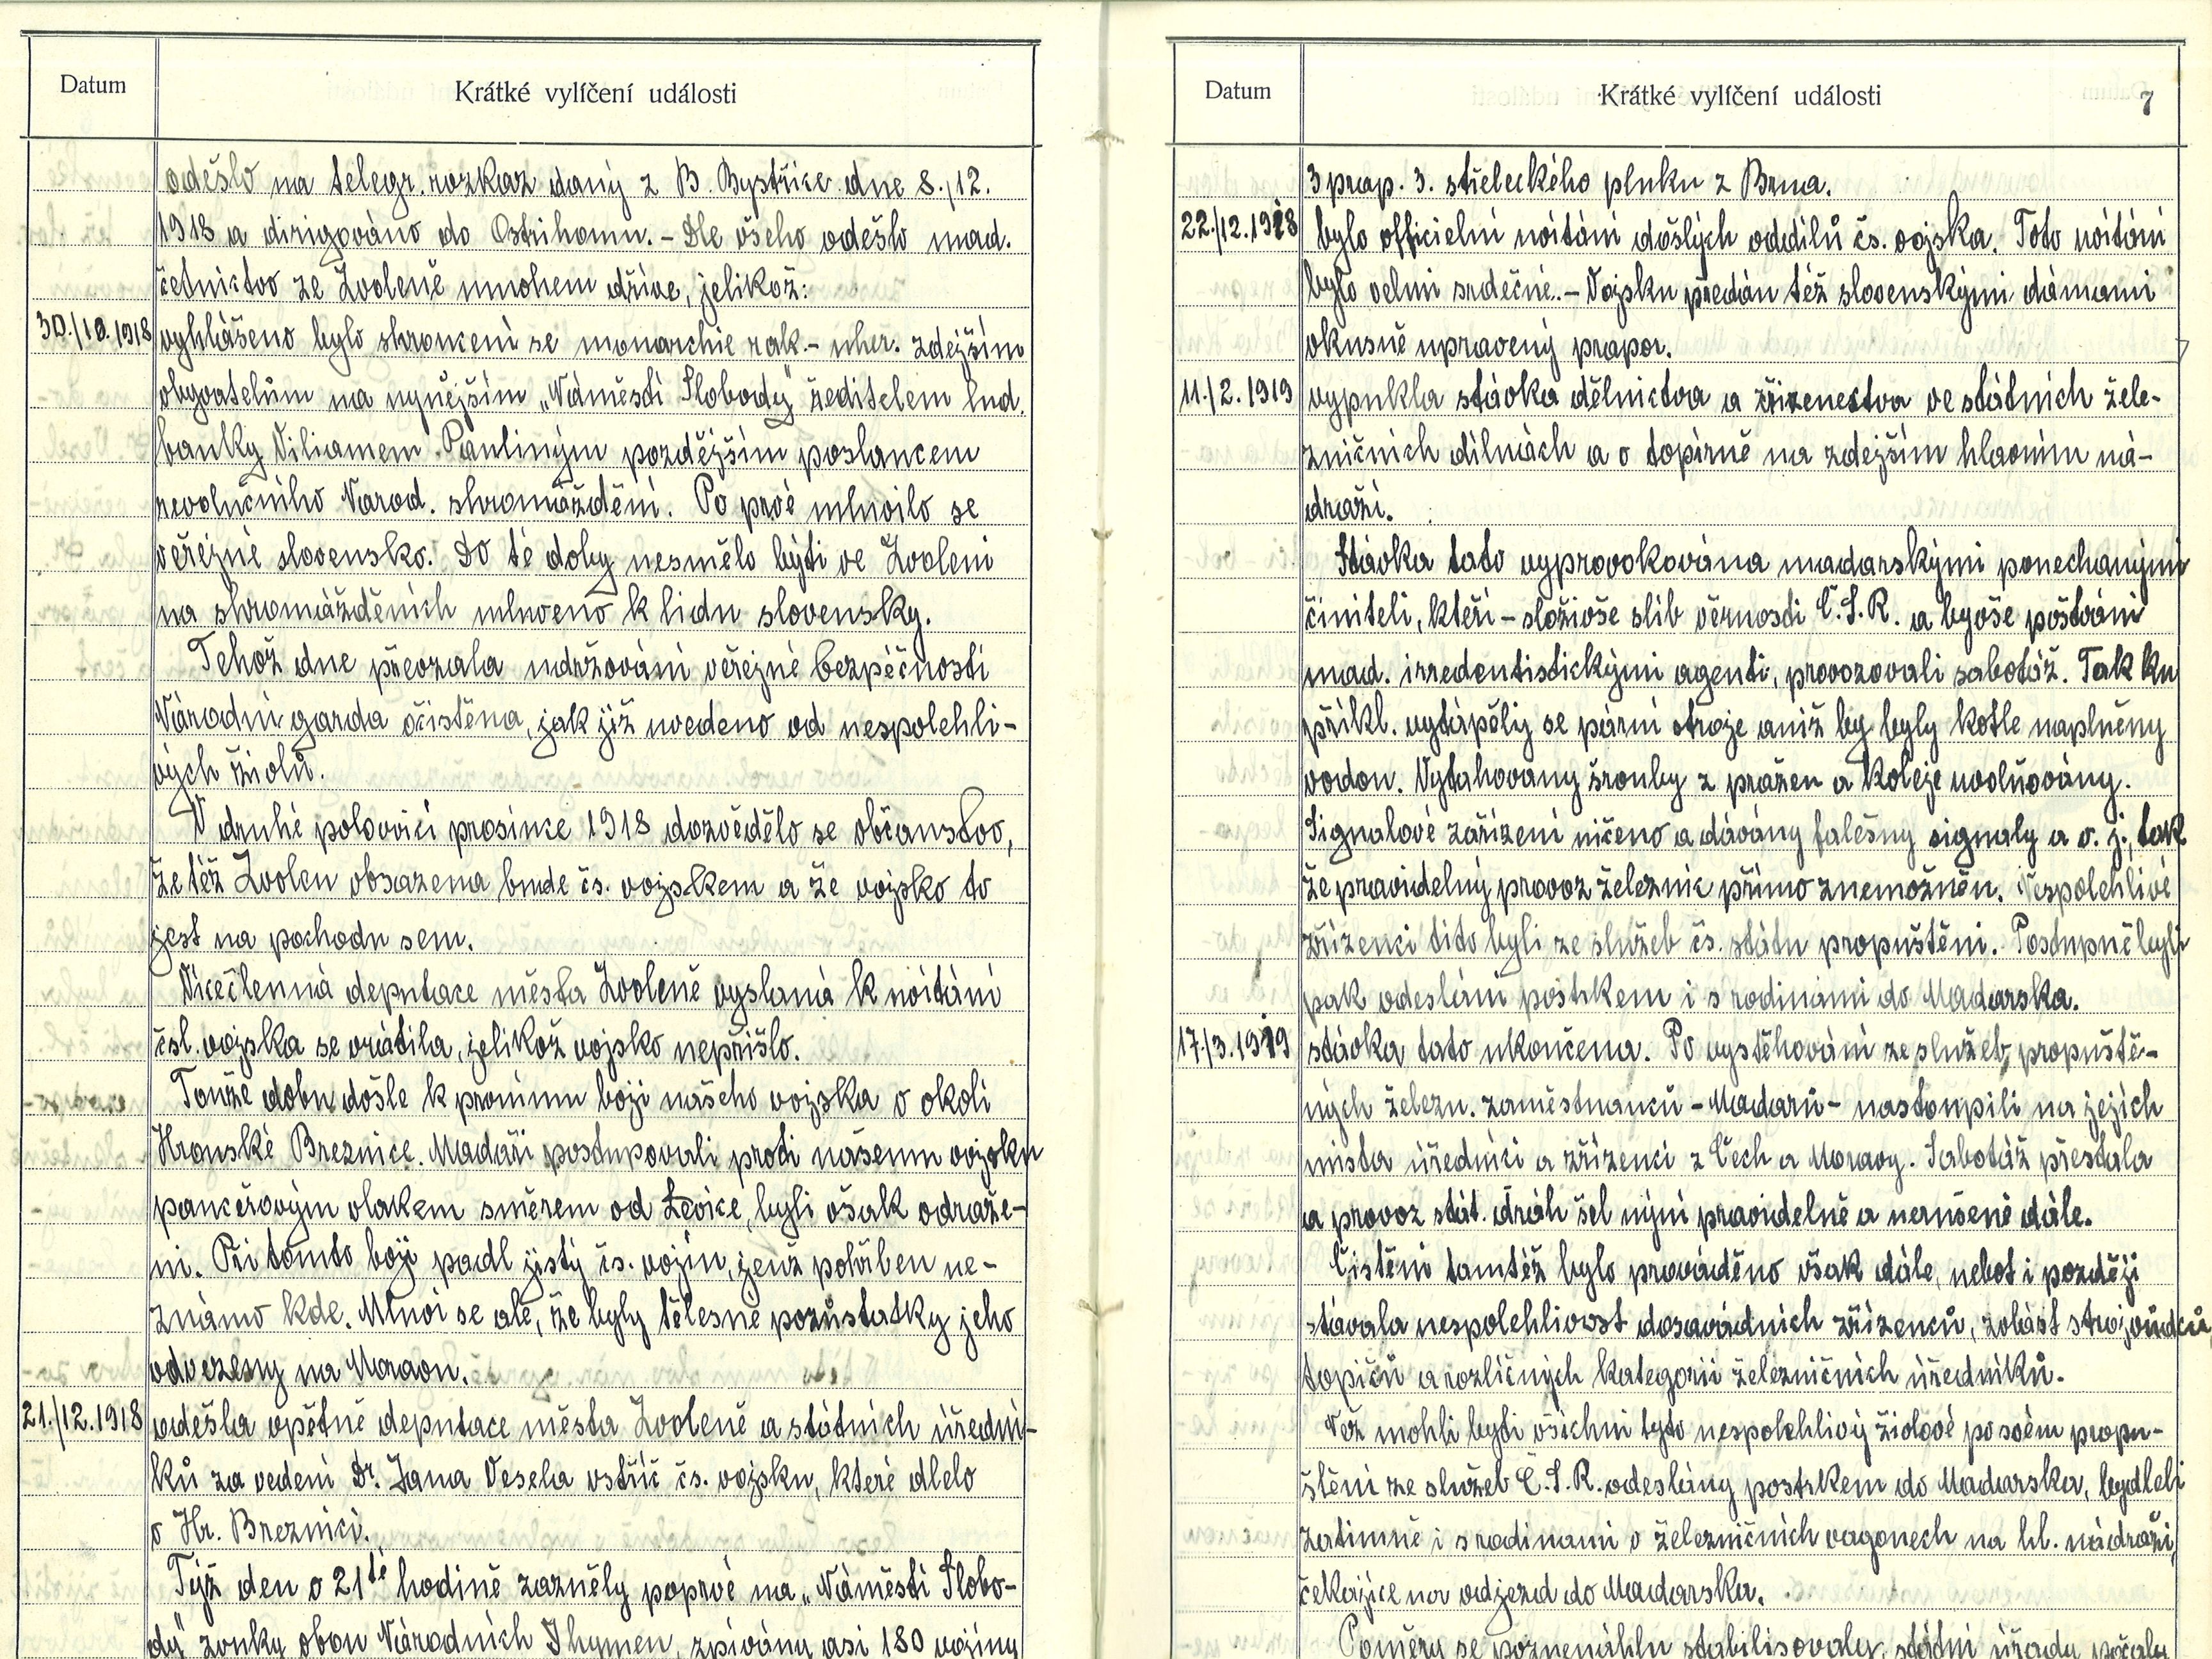 Datum Krátké vylíčení události
odešlo na telegr. rozkaz daný z B. Bystřice dne 8./12.
1918 a dirigováno do Ostrihomu. – Dle všeho odešlo mad.
četnictvo ze Zvoleně mnohem dříve, jelikož:
30./10.1918 vyhlášeno bylo shroucení se monarchie rak.- uher. zdejším
obyvatelům na nynějším „Náměstí Slobody" ředitelem lud.
banky Viliamem Paulíným pozdějším poslancem
revolučního Narod. shromáždění. Po prvé mluvilo se
věřejně slovensko. Do té doby nesmělo býti ve Zvoleni
na shromážděních mluveno k lidu slovensky.
Tehož dne převzala udržování věřejné bezpěčnosti
Národní garda očistěna, jak již uvedeno od nespolehli-
vých živlů.
V druhé polovici prosince 1918 dozvědělo se občanstvo,
že též Zvolen obsazena bude čs. vojskem a že vojsko to
jest na pochodu sem.
Vícečlenná deputace města Zvoleně vyslaná k uvítání
čsl. vojska se vrátila, jelikož vojsko nepřišlo.
Touže dobu došle k prvnímu boji našeho vojska v okolí
Hronské Breznice. Madaři postupovali proti našemu vojsku
pancéřovým vlakem směrem od Levice, byli však odraže-
ni. Při tomto boji padl jistý čs. vojín, jenž pohřben ne-
známo kde. Mluví se ale, že byly tělesné pozůstatky jeho
odvezeny na Moravu.
21./12.1918 odešla opětně deputace města Zvoleně a státních úředni-
ků za vedení Dr. Jana Vesela vstříc čs. vojsku, které dlelo
v Hr. Breznici.
Týž den o 21té hodině zazněly poprvé na „Náměstí Slobo-
dy" zvuky obou Národních Ihymen, zpívány asi 180 vojíny
Datum Krátké vylíčení události 7
3 prap. 3. střeleckého pluku z Brna.
22./12.1918 bylo officielní uvítání došlých oddílů čs. vojska. Toto uvítání
bylo velmi srdečné. – Vojsku předán též slovenskými dámami
vkusně upravený prapor.
11./2.1919 vypukla stávka dělnictva a zřízenectva ve státních žele-
zničních dílnách a v topírně na zdejším hlavním ná-
draží.
Stávka tato vyprovokována madarskými ponechanými
činiteli, kteří – složivše slib věrnosti Č.S.R. a byvše poštváni
mad. irredentistickými agenti, provozovali sabotáž. Tak ku
příkl. vytápěly se pární stroje aniž by byly kotle naplněny
vodou. Vytahovany šrouby z pražen a koleje uvolňovány.
Signalové zařízení ničeno a dávány falešny signaly a v. j., tak
že pravidelný provoz železnic přímo znemožněn. Nespolehlivé
zřízenci tito byli ze služeb čs. státu propuštěni. Postupně byli
pak odeslání postrkem i s rodinami do Madarska.
17./3.1919 stávka tato ukončena. Po vystěhování ze služeb propuště-
ných železn. zaměstnanců – Madarů – nastoupili na jejich
místa úředníci a zřízenci z Čech a Moravy. Sabotáž přestala
a provoz stát. dráh šel nýní pravidelně a nerušeně dále.
Čistění tamtéž bylo prováděno však dále, nebot i později
stávala nespolehlivost dosavádních zřízenců, zvlást strojvůdců,
topičů a rozličných kategorií železničních úředníků.
Než mohli byti všichni tyto nespolehlivý živlové po svém propu-
štění ze služeb Č.S.R. odeslány postrkem do Madarska, bydleli
zatimně i s rodinami v železničních vagonech na hl. nádraží,
čekajíce na odjezd do Madarska.
Poměry se poznenáhlu stabilisovaly, státní úřady počaly